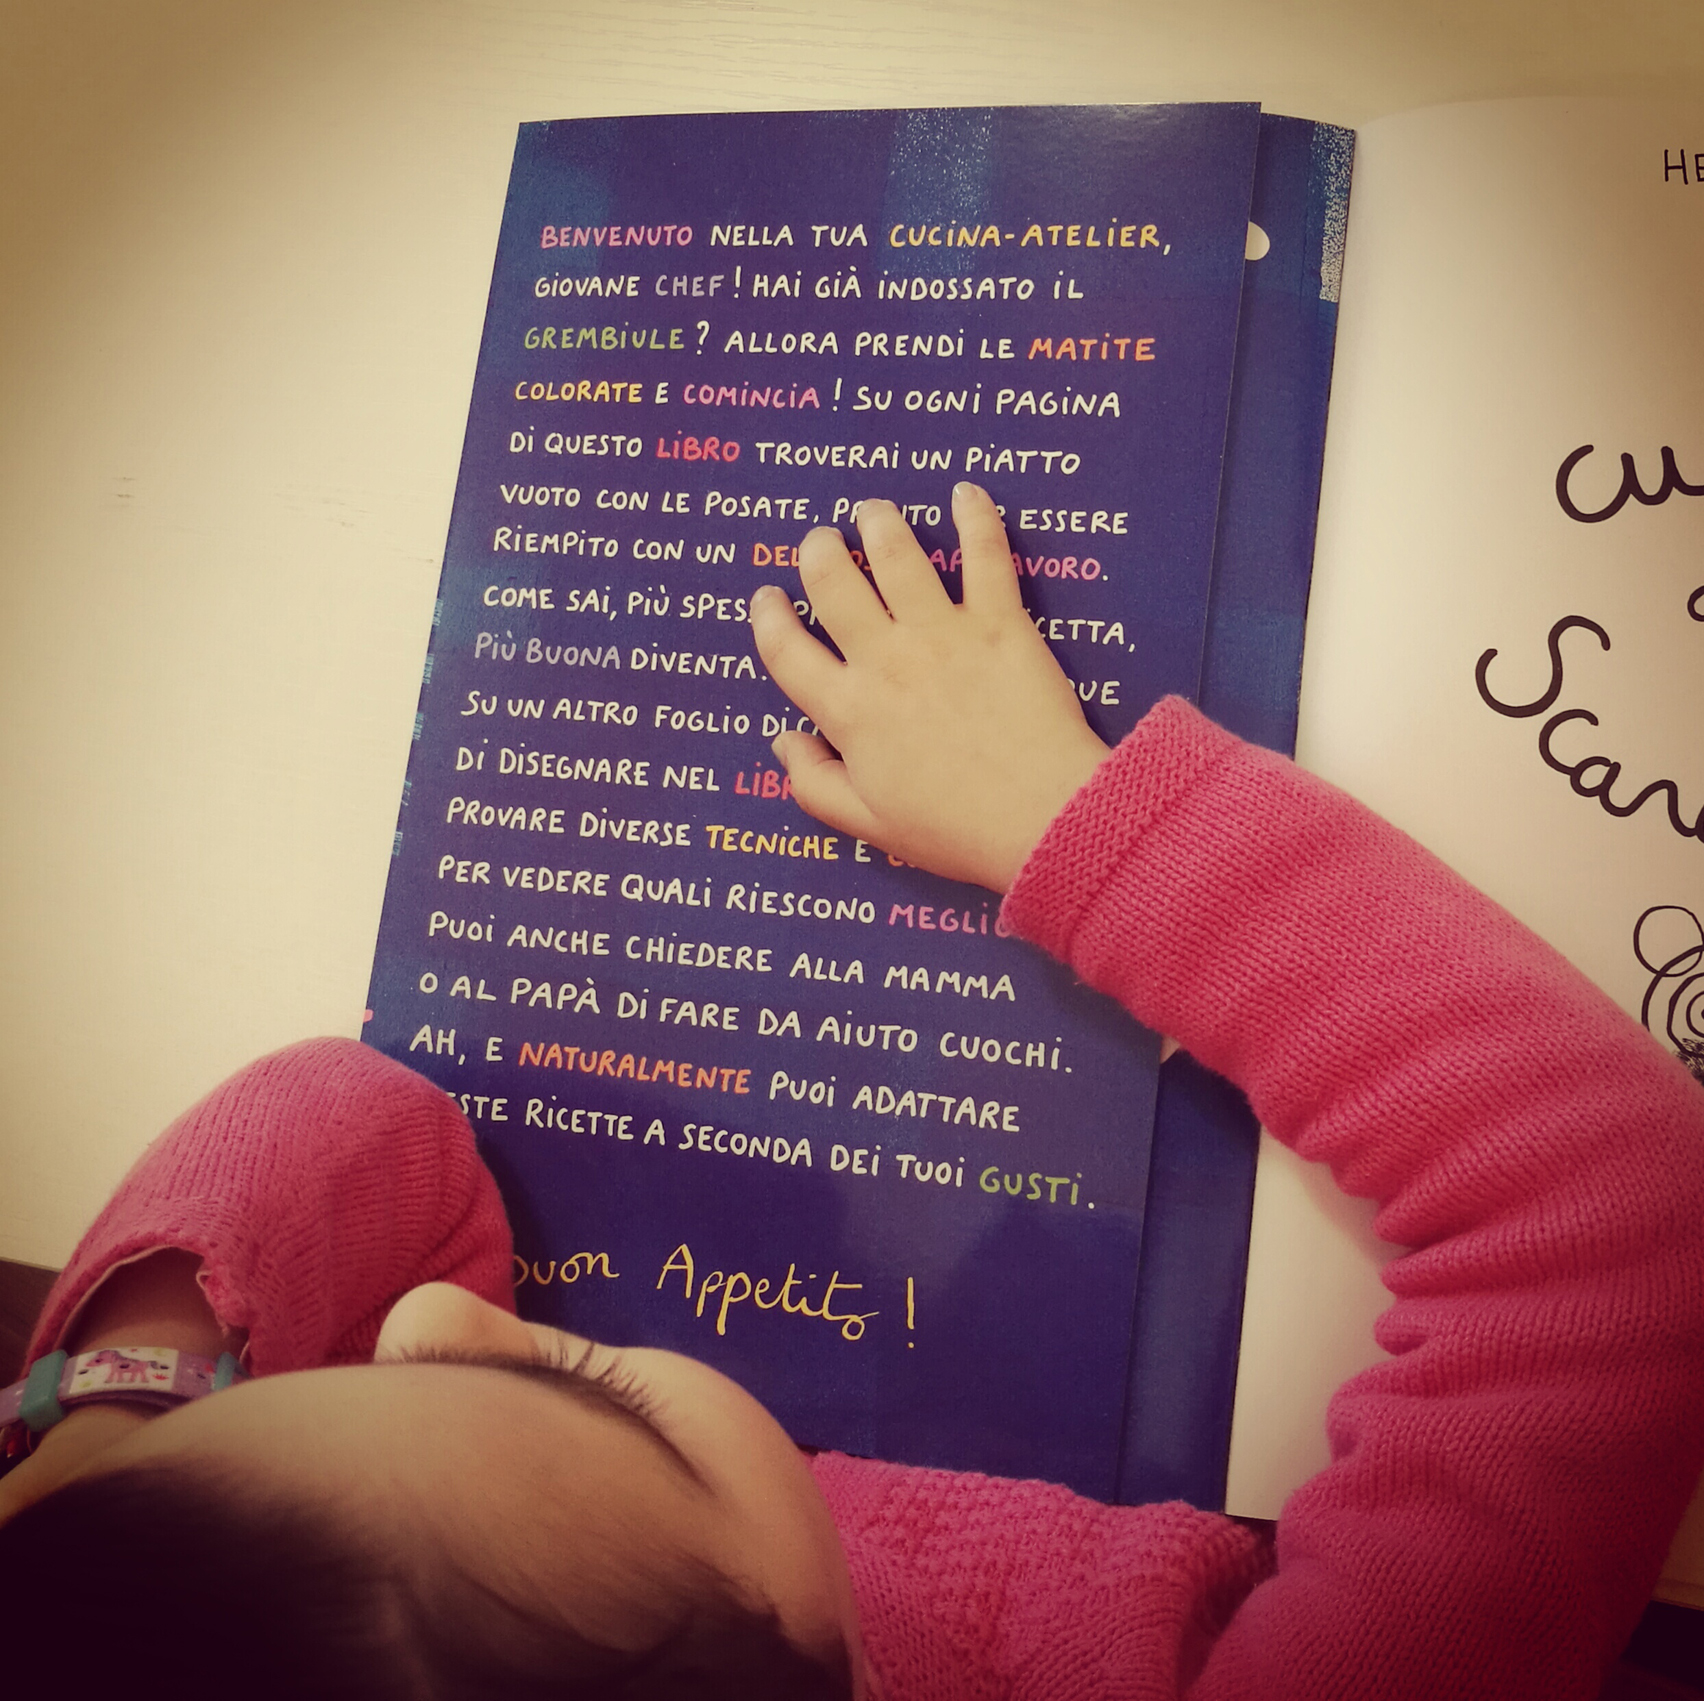 BENVENUTO NELLA TUA CUCINA-ATELIER,
GIOVANE CHEF! HAI GIÀ INDOSSATO IL
GREMBIULE? ALLORA PRENDI LE MATITE
COLORATE E COMINCIA! SU OGNI PAGINA
DI QUESTO LIBRO TROVERAI UN PIATTO
VUOTO CON LE POSATE, ESSERE
RIEMPITO CON UN
COME SAI, PIÙ
PIÙ BUONA DIVENTA.
SU UN ALTRO FOGLIO DI
DI DISEGNARE NEL
PROVARE DIVERSE TECNICHE E
PER VEDERE QUALI RIESCONO
PUOI ANCHE CHIEDERE ALLA MAMMA
O AL PAPÀ DI FARE DA AIUTO CUOCHI.
AH, E NATURALMENTE PUOI ADATTARE
RICETTE A SECONDA DEI TUOI GUSTI.
Buon Appetito!